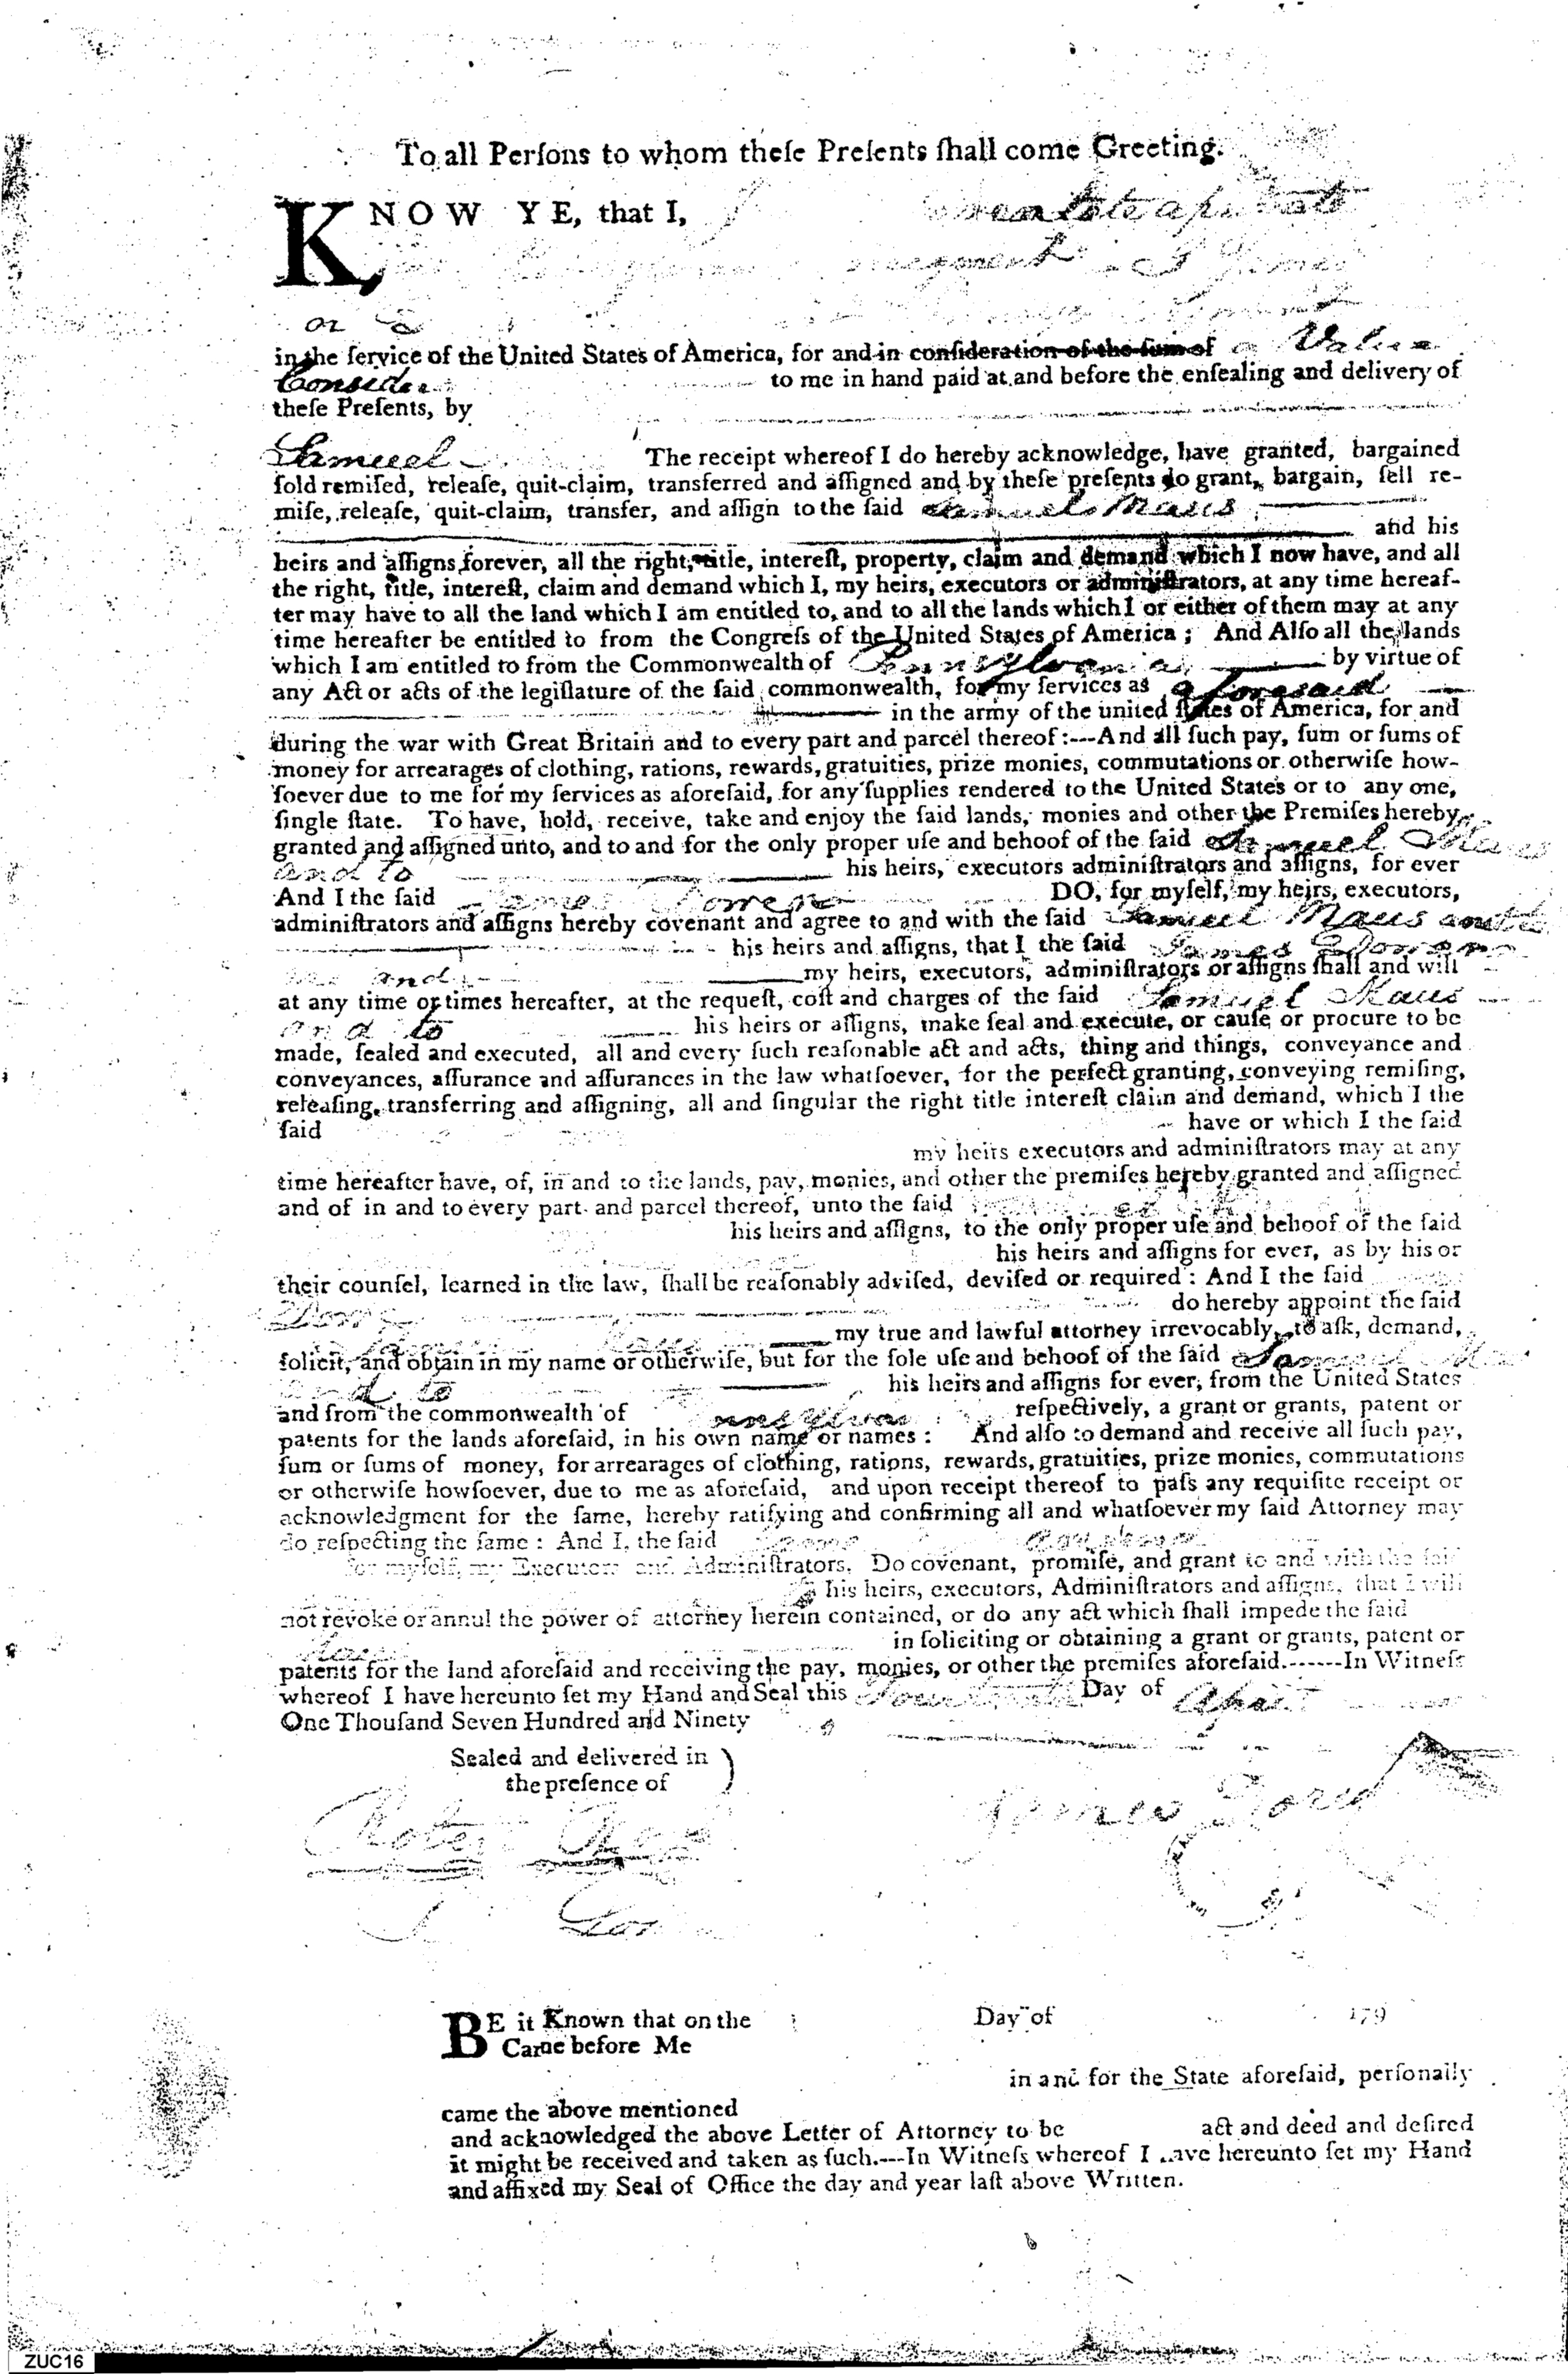 To all Perſons to whom theſe Preſents ſhall come Greeting.
KNOW YE, that I,
or
in the ſervice of the United States of America, for and in conſideration of the ſum of a Valua
Consider
to me in hand paid at and before the enſealing and delivery of
theſe Preſents, by
Samuel The receipt whereof I do hereby acknowledge, have granted, bargained
ſold remiſed, releaſe, quit-claim, transferred and aſſigned and by theſe preſents do grant, bargain, ſell re-
miſe, releaſe, quit-claim, transfer, and aſſign to the ſaid Samuel Maus
and his
heirs and aſſigns forever, all the right, title, intereſt, property, claim and demand which I now have, and all
the right, title, intereſt, claim and demand which I, my heirs, executors or adminiſtrators, at any time hereaf-
ter may have to all the land which I am entitled to, and to all the lands which I or either of them may at any
time hereafter be entitled to from the Congreſs of the United States of America ; And Alſo all the lands
which I am entitled to from the Commonwealth of Pennsylvania, by virtue of
any Act or acts of the legiſlature of the ſaid commonwealth, for my ſervices as aforesaid
in the army of the united ſtates of America, for and
during the war with Great Britain and to every part and parcel thereof :---And all ſuch pay, ſum or ſums of
money for arrearages of clothing, rations, rewards, gratuities, prize monies, commutations or otherwiſe how-
ſoever due to me for my ſervices as aforeſaid, for any ſupplies rendered to the United States or to any one,
ſingle ſtate. To have, hold, receive, take and enjoy the ſaid lands, monies and other the Premiſes hereby
granted and aſſigned unto, and to and for the only proper uſe and behoof of the ſaid Samuel Maus
and to his heirs, executors adminiſtrators and aſſigns, for ever
And I the ſaid James DO, for myſelf, my heirs, executors,
adminiſtrators and aſſigns hereby covenant and agree to and with the ſaid Samuel Maus and to
his heirs and aſſigns, that I the ſaid James
and my heirs, executors, adminiſtrators or aſſigns ſhall and will
at any time or times hereafter, at the requeſt, coſt and charges of the ſaid Samuel Maus
and to his heirs or aſſigns, make ſeal and execute, or cauſe or procure to be
made, ſealed and executed, all and every ſuch reaſonable act and acts, thing and things, conveyance and
conveyances, aſſurance and aſſurances in the law whatſoever, for the perfect granting, conveying remiſing,
releaſing, transferring and aſſigning, all and ſingular the right title intereſt claim and demand, which I the
ſaid have or which I the ſaid
my heirs executors and adminiſtrators may at any
time hereafter have, of, in and to the lands, pay, monies, and other the premiſes hereby granted and aſſigned
and of in and to every part and parcel thereof, unto the ſaid
his heirs and aſſigns, to the only proper uſe and behoof of the ſaid
his heirs and aſſigns for ever, as by his or
their counſel, learned in the law, ſhall be reaſonably adviſed, deviſed or required : And I the ſaid
do hereby appoint the ſaid
my true and lawful attorney irrevocably, to aſk, demand,
ſolicit, and obtain in my name or otherwiſe, but for the ſole uſe and behoof of the ſaid Samuel
and to his heirs and aſſigns for ever, from the United States
and from the commonwealth of reſpectively, a grant or grants, patent or
patents for the lands aforeſaid, in his own name or names : And alſo to demand and receive all ſuch pay,
ſum or ſums of money, for arrearages of clothing, rations, rewards, gratuities, prize monies, commutations
or otherwiſe howſoever, due to me as aforeſaid, and upon receipt thereof to paſs any requiſite receipt or
acknowledgment for the ſame, hereby ratifying and confirming all and whatſoever my ſaid Attorney may
do reſpecting the ſame : And I, the ſaid
for myſelf, my Executors and Adminiſtrators, Do covenant, promiſe, and grant to and with the ſaid
his heirs, executors, Adminiſtrators and aſſigns, that I will
not revoke or annul the power of attorney herein contained, or do any act which ſhall impede the ſaid
in ſoliciting or obtaining a grant or grants, patent or
patents for the land aforeſaid and receiving the pay, monies, or other the premiſes aforeſaid.------In Witneſs
whereof I have hereunto ſet my Hand and Seal this Day of April
One Thouſand Seven Hundred and Ninety
Sealed and delivered in
the preſence of
James
BE it Known that on the Day of 179
Came before Me
in and for the State aforeſaid, perſonally
came the above mentioned
and acknowledged the above Letter of Attorney to be act and deed and deſired
it might be received and taken as ſuch.---In Witneſs whereof I have hereunto ſet my Hand
and affixed my Seal of Office the day and year laſt above Written.
ZUC16